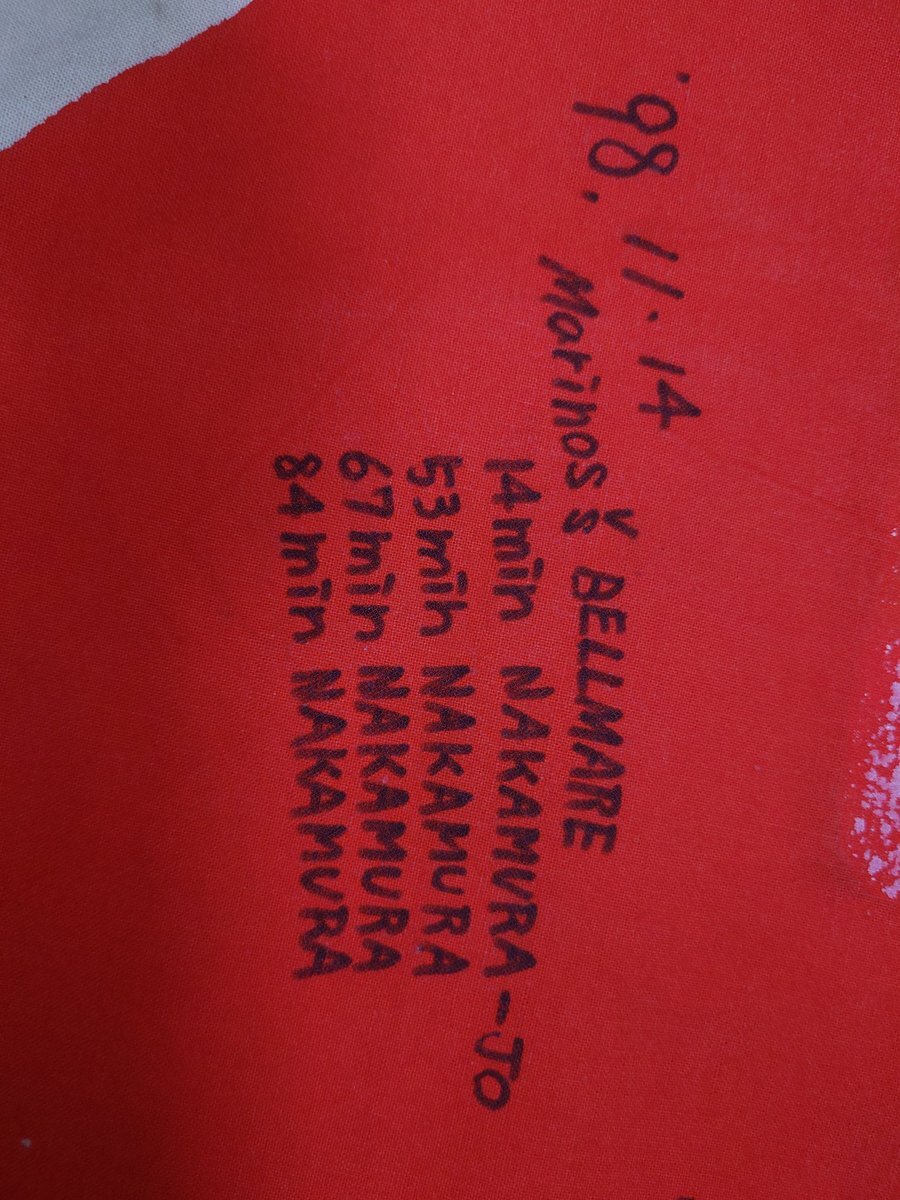 '98. 11. 14
Marinos VS BELLMARE
14min NAKAMURA-JO
53min NAKAMURA
67min NAKAMURA
84min NAKAMURA